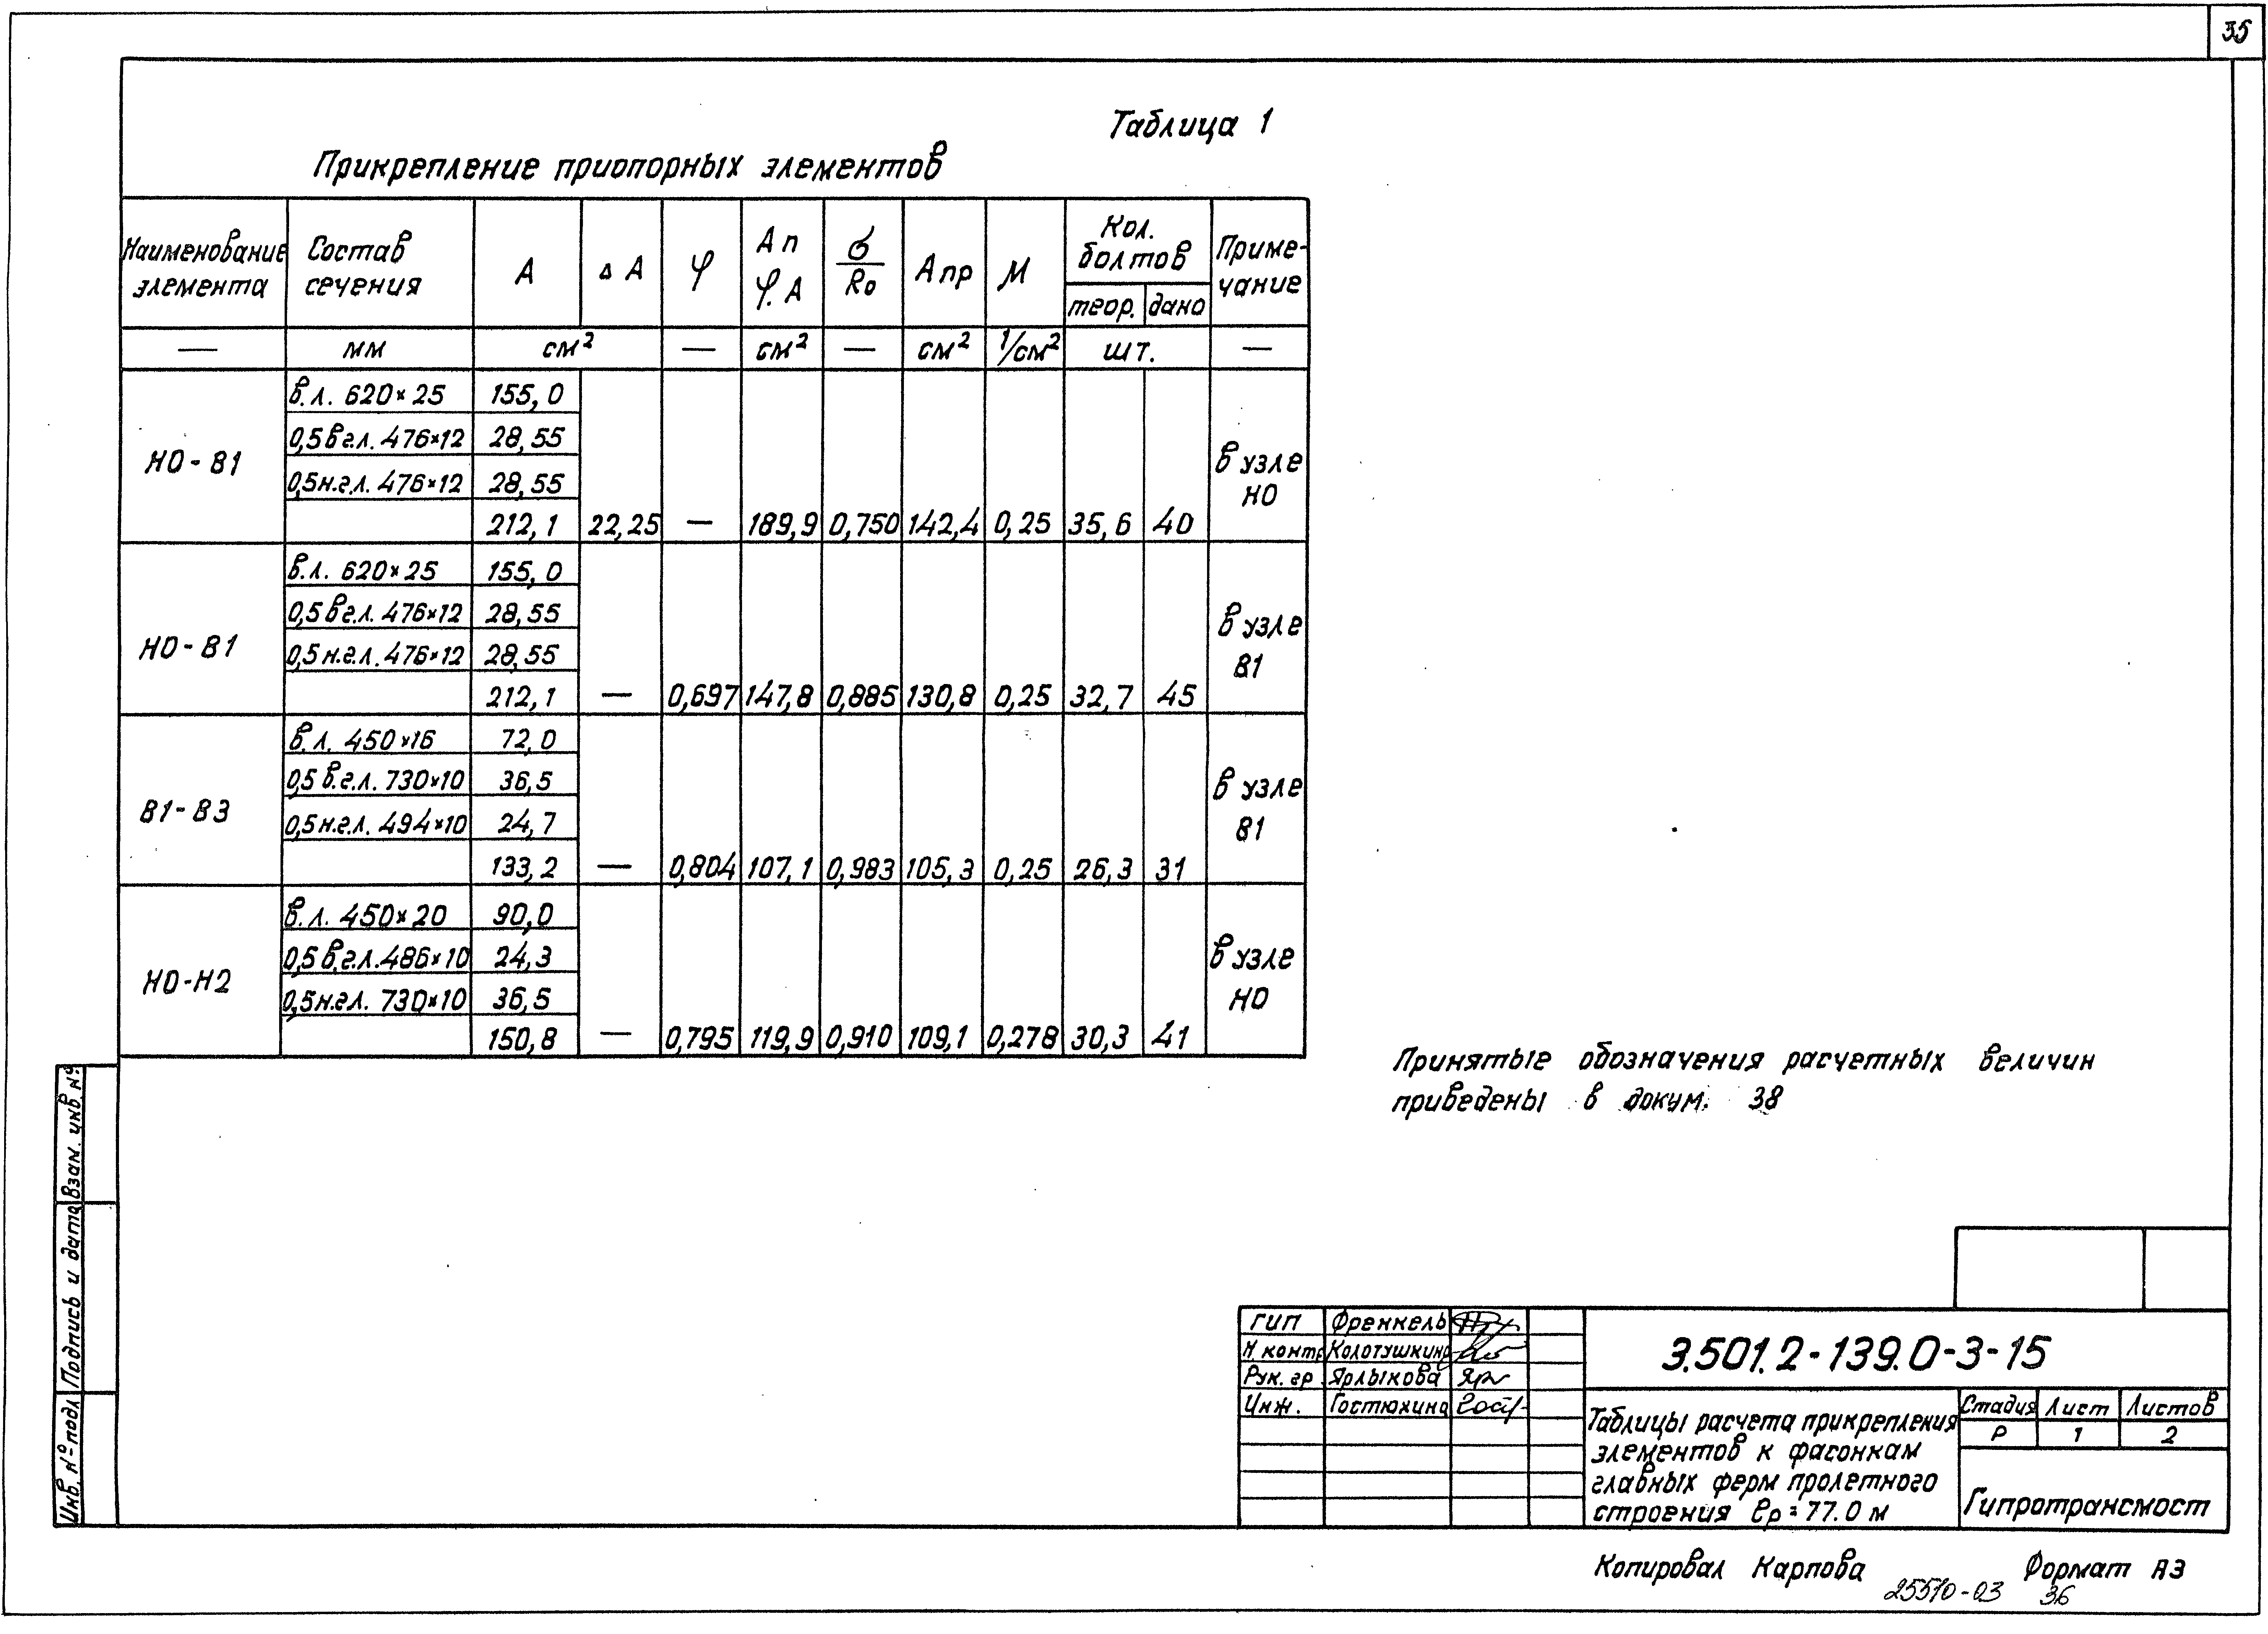 35
Таблица 1
Прикрепление приопорных элементов
Наименование элемента | Состав сечения | A | ΔA | φ | Aп φ.A | σ/Ro | Aпр | M | Кол. болтов | Примечание
теор. | дано
— | мм | см² | — | см² | — | см² | 1/см² | шт. | —
Н0-В1
в.л. 620×25 155,0
0,5 вг.л. 476×12 28,55
0,5н.г.л. 476×12 28,55
212,1 22,25 — 189,9 0,750 142,4 0,25 35,6 40
в узле Н0
Н0-В1
в.л. 620×25 155,0
0,5 вг.л. 476×12 28,55
0,5 н.г.л. 476×12 28,55
212,1 — 0,697 147,8 0,885 130,8 0,25 32,7 45
в узле В1
В1-В3
в.л. 450×16 72,0
0,5 в.г.л. 730×10 36,5
0,5н.г.л. 494×10 24,7
133,2 — 0,804 107,1 0,983 105,3 0,25 26,3 31
в узле В1
Н0-Н2
в.л. 450×20 90,0
0,5 в.г.л. 486×10 24,3
0,5н.гл. 730×10 36,5
150,8 — 0,795 119,9 0,910 109,1 0,278 30,3 41
в узле Н0
Принятые обозначения расчетных величин
приведены в докум. 38
Взам. инв. №
Подпись и дата
Инв. № подл
ГИП Френкель
Н. контр Колотушкина
Рук. гр. Ярлыкова
Инж. Гостюхина
3.501.2-139.0-3-15
Таблицы расчета прикрепления
элементов к фасонкам
главных ферм пролетного
строения lр=77.0 м
Стадия Лист Листов
Р 1 2
Гипротрансмост
Копировал Карпова Формат А3
25570-03 36